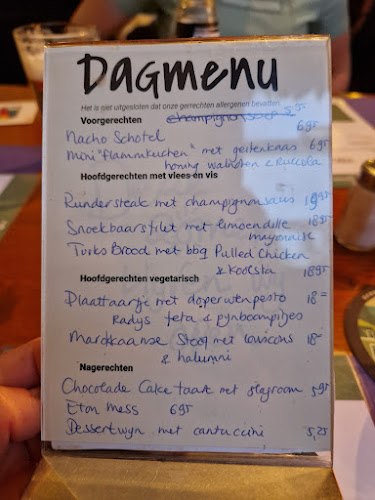 Dagmenu
Het is niet uitgesloten dat onze gerechten allergenen bevatten.
Voorgerechten champignonsoep 5,95
Nacho Schotel 6,95
Mini "flammkuchen" met geitenkaas 6,95
honing walnoten & Ruccola
Hoofdgerechten met vlees en vis
Rundersteak met champignonsaus 19,95
Snoekbaarsfilet met limoendille 18,95
mayonaise
Turks Brood met bbq Pulled Chicken
& koolsla 18,95
Hoofdgerechten vegetarisch
Plaattaartje met doperwtenpesto 18=
Radijs feta & pijnboompitjes
Marokkaanse Stoof met couscous 18=
& halumni
Nagerechten
Chocolade Cake taart met slagroom 5,95
Eton mess 6,95
Dessertwijn met cantuccini 5,25